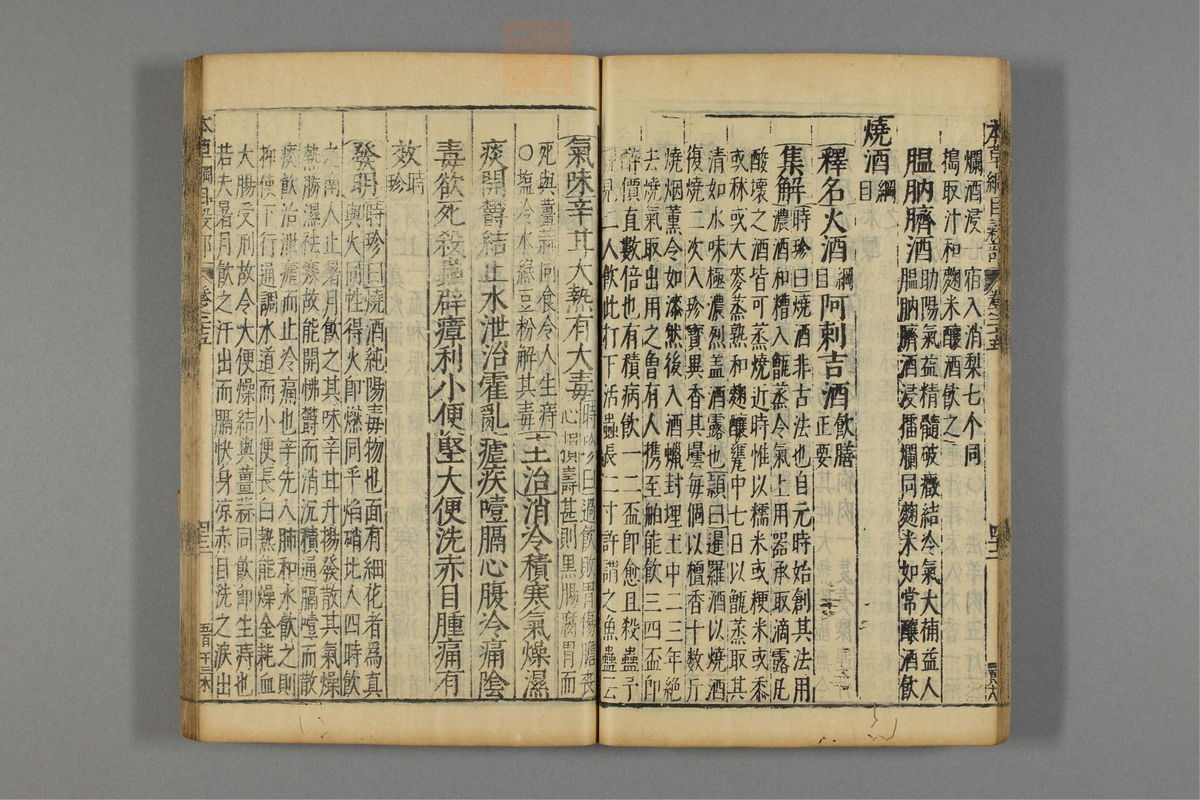 本草綱目穀部 卷二十五
爛酒浸七宿入消梨七个同
搗取汁和麴米釀酒飲之
膃肭臍酒助陽氣益精髓破癥結冷氣大補益人
膃肭臍酒浸擂爛同麴米如常釀酒飲
燒酒綱目
釋名火酒綱目阿剌吉酒飲膳正要
集解時珍曰燒酒非古法也自元時始創其法用
濃酒和糟入甑蒸令氣上用器承取滴露凡
酸壞之酒皆可蒸燒近時惟以糯米或粳米或黍
或秫或大麥蒸熟和麴釀甕中七日以甑蒸取其
清如水味極濃烈蓋酒露也頴曰暹羅酒以燒酒
復燒二次入珍寶異香其罈每個以檀香十數斤
燒烟薰令如漆然後入酒蠟封埋土中二三年絕
去燒氣取出用之曾有人携至舶能飲三四盃即
醉價直數倍也有積病飲一二盃即愈且殺蠱予
見二人飲此打下活蟲長二寸許謂之魚蠱云
氣味辛甘大熱有大毒時珍曰過飲敗胃傷膽喪
心損壽甚則黑腸腐胃而
死與薑蒜同食令人生痔
〇塩冷水綠豆粉解其毒主治消冷積寒氣燥濕
痰開鬱結止水泄治霍亂瘧疾噎膈心腹冷痛陰
毒欲死殺蟲辟瘴利小便堅大便洗赤目腫痛有
效時珍
發明時珍曰燒酒純陽毒物也面有細花者爲真
與火同性得火即燃同乎焰硝北人四時飲
之南人止暑月飲之其味辛甘升揚發散其氣燥
熱勝濕祛寒故能開怫鬱而消沉積通膈噎而散
痰飲治泄瘧而止冷痛也辛先入肺和水飲之則
抑使下行通調水道而小便長白熱能燥金耗血
大腸受刑故令大便燥結與薑蒜同飲即生痔也
若夫暑月飲之汗出而膈快身涼赤目洗之淚出
本草綱目穀部 卷二十五